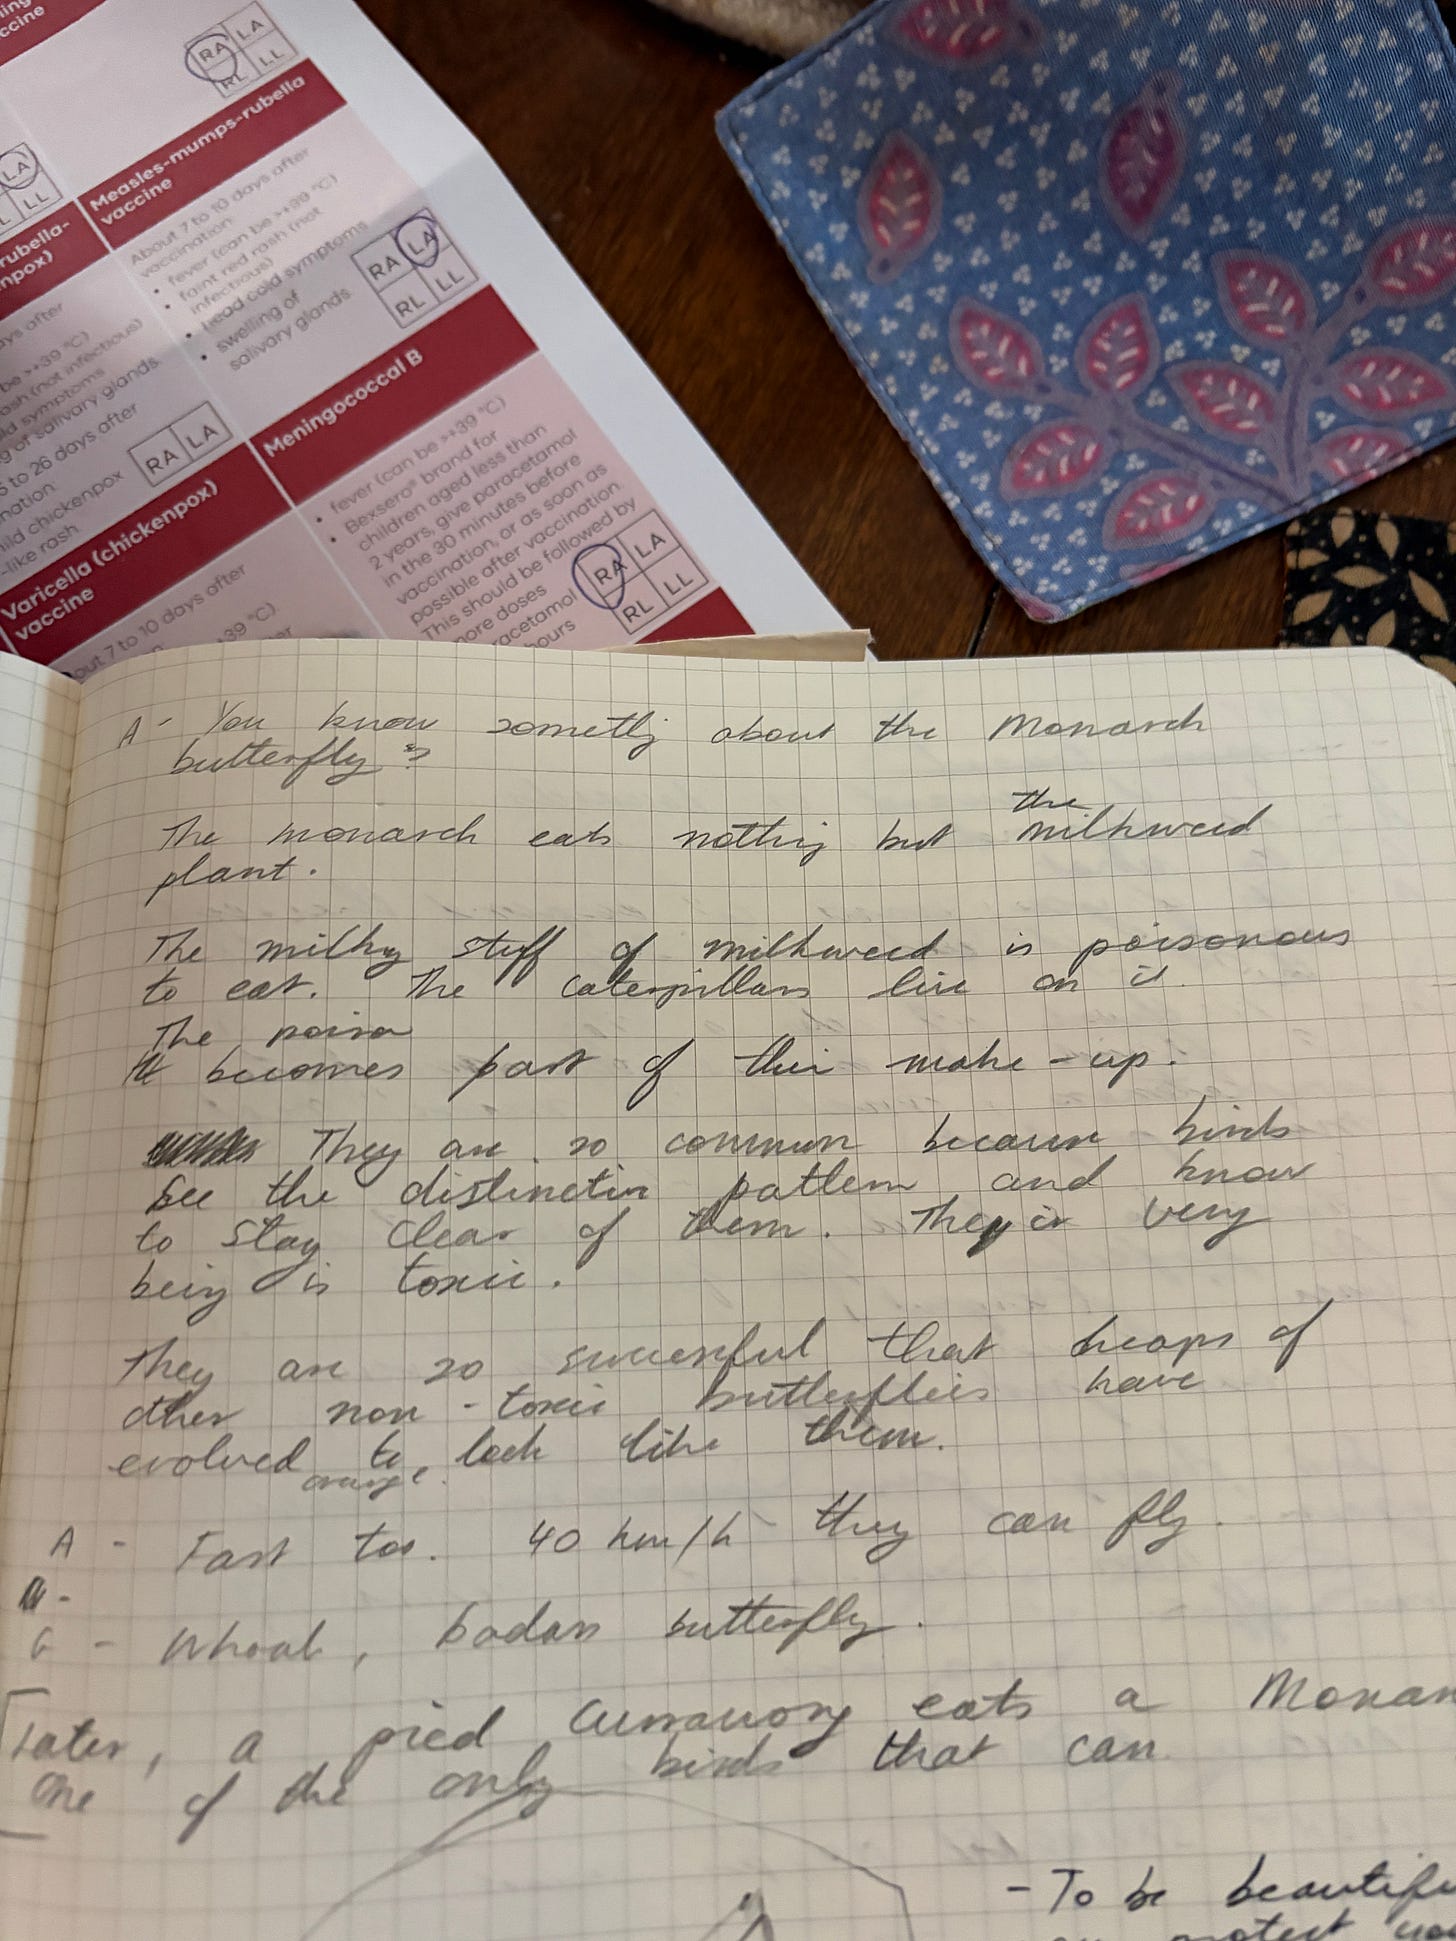 ccine
RA LA
RL LL
LA
L LL
Measles-mumps-rubella
vaccine
About 7 to 10 days after
vaccination:
• fever (can be >+39 °C)
• faint red rash (not
infectious)
• head cold symptoms
• swelling of
salivary glands.
RA LA
RL LL
rubella-
npox)
ays after
be >+39 °C)
ash (not infectious)
ld symptoms
g of salivary glands.
5 to 26 days after
nation:
ild chickenpox
-like rash
RA LA
Meningococcal B
• fever (can be >+39 °C)
• Bexsero® brand for
children aged less than
2 years, give paracetamol
in the 30 minutes before
vaccination, or as soon as
possible after vaccination.
This should be followed by
more doses
racetamol
hours
RA LA
RL LL
Varicella (chickenpox)
vaccine
out 7 to 10 days after
+39 °C)
A - You know somethg about the Monarch
butterfly?
The monarch eats nothing but the milkweed
plant.
The milky stuff of milkweed is poisonous
to eat. The caterpillars live on it.
The poison
becomes part of their make-up.
They are so common because birds
see the distinctive pattern and know
to stay clear of them. Their very
being is toxic.
They are so successful that heaps of
other non-toxic butterflies have
evolved to look like them.
orange
A - Fast too. 40 km/h they can fly.
G - Whoah, badass butterfly.
Later, a pied Currawong eats a Monar
One of the only birds that can
- To be beautifu